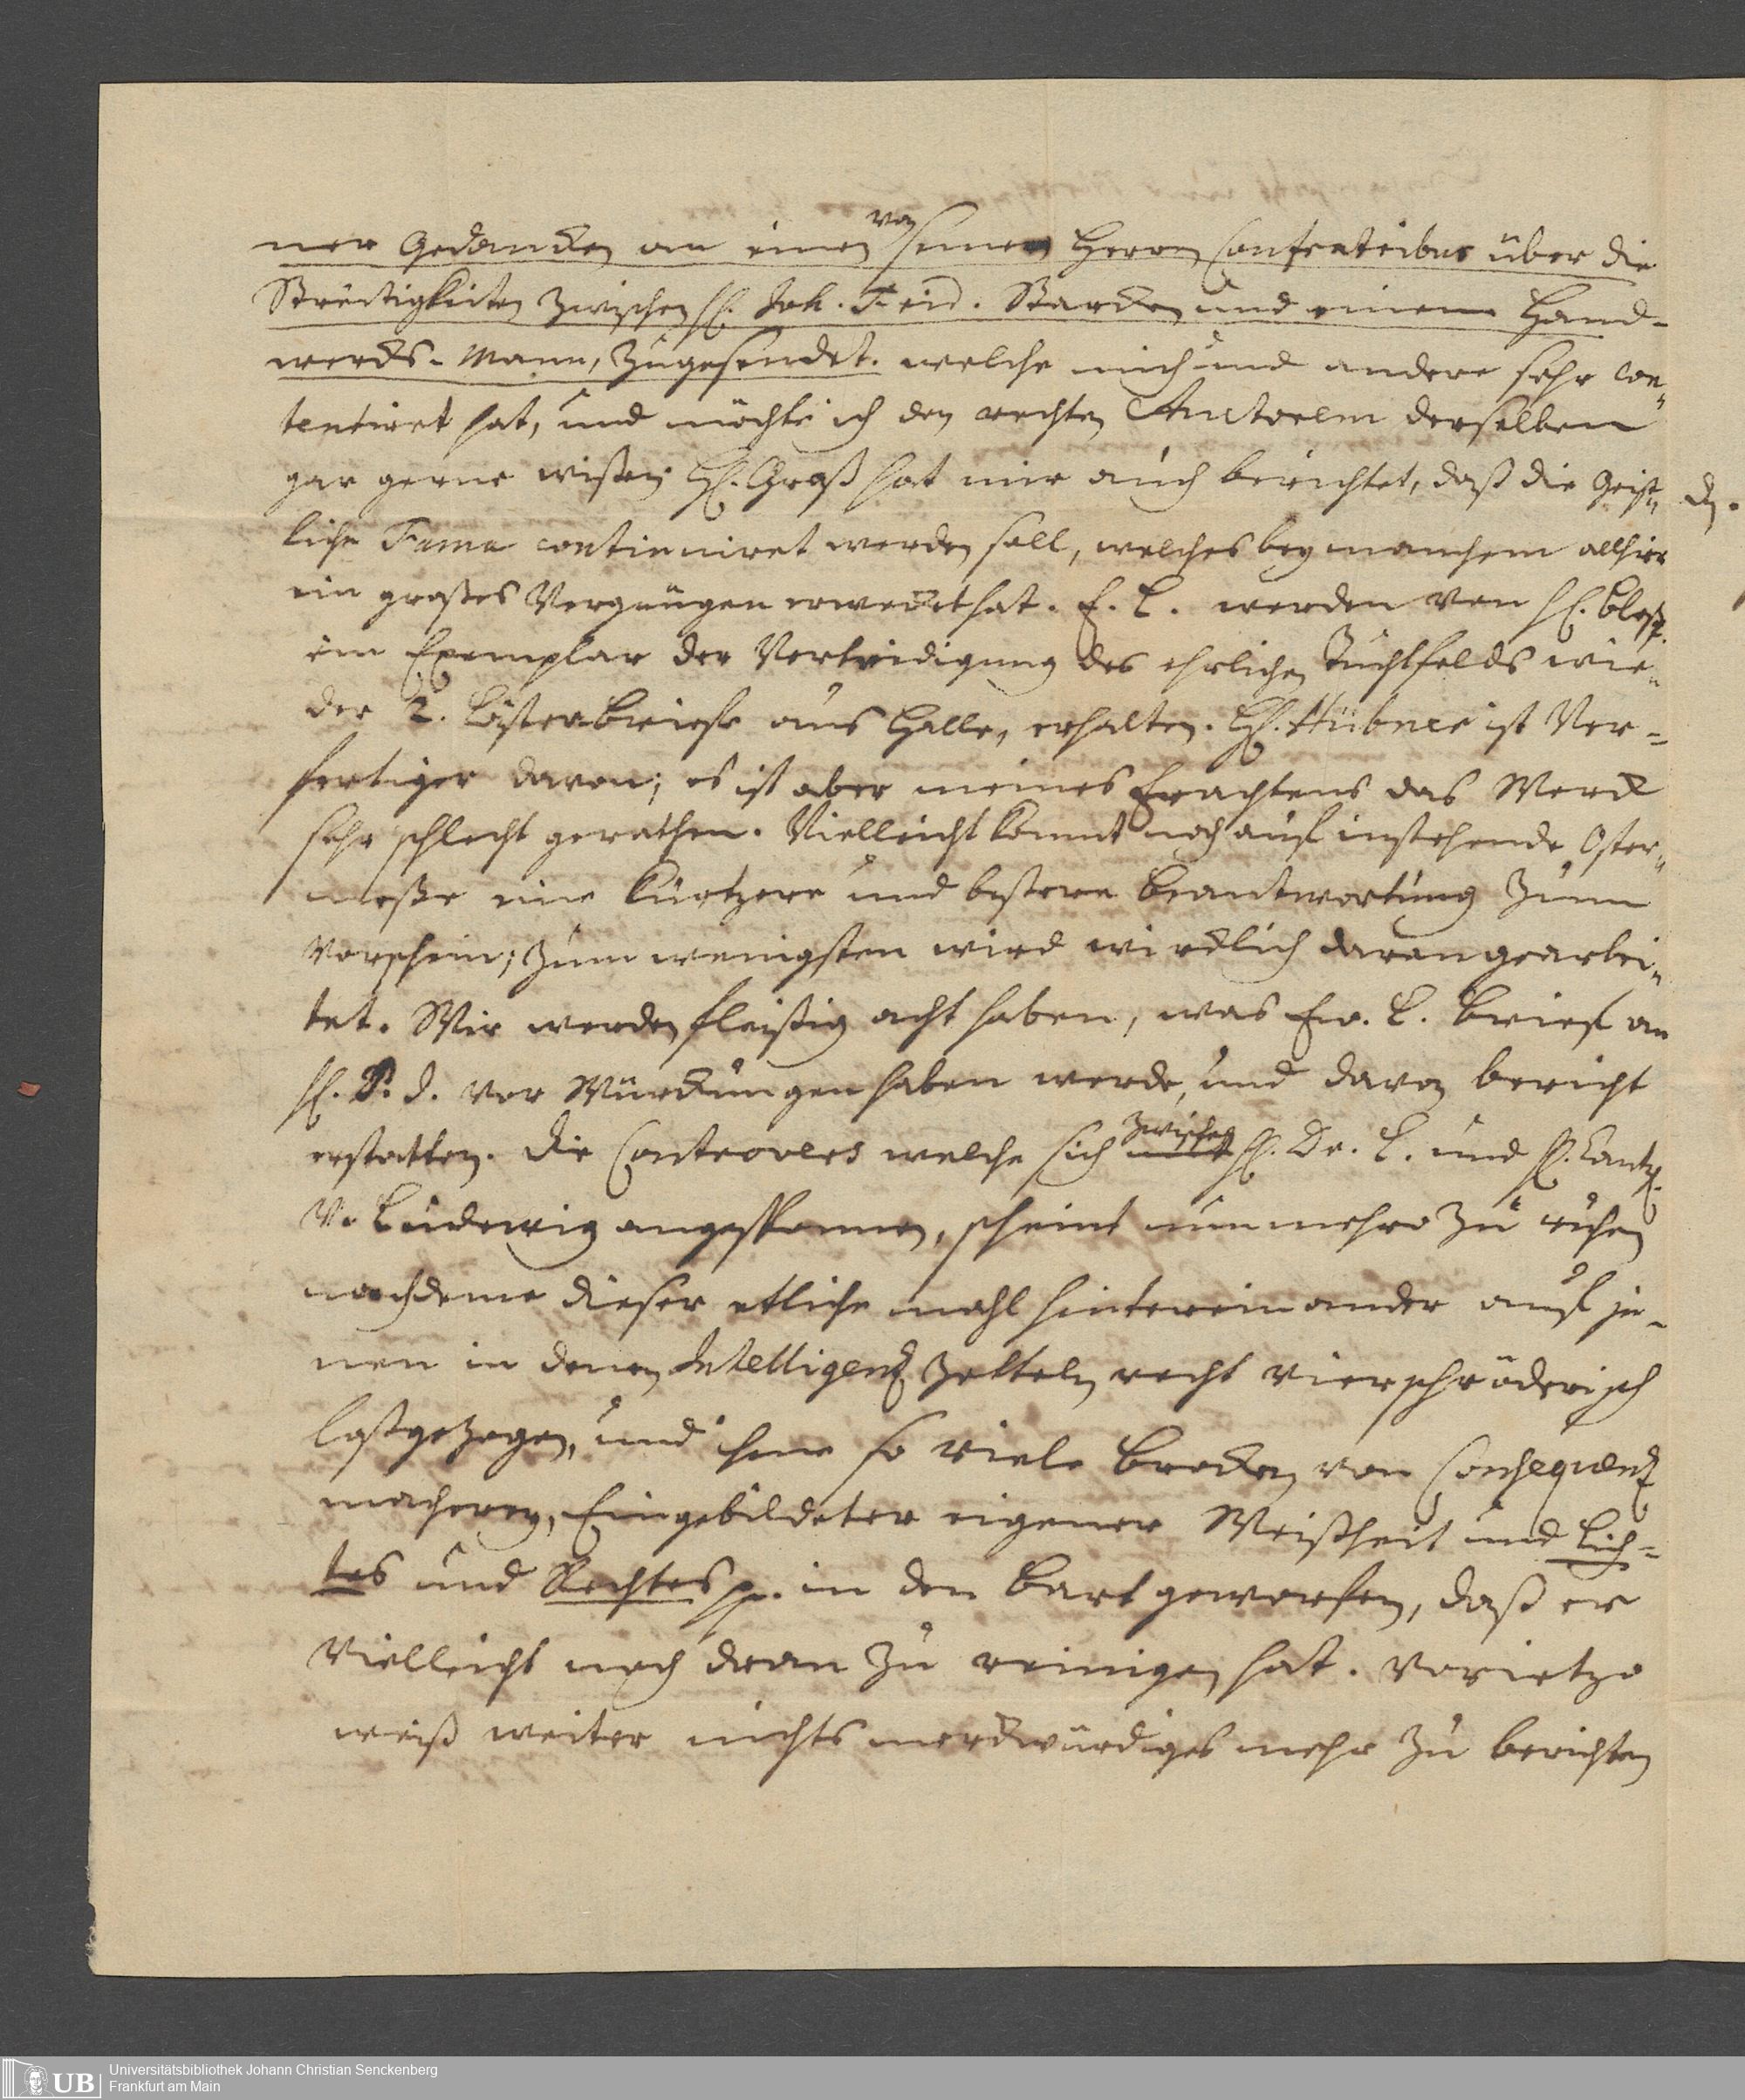 ner Gedancken an einen von seinen Herren Confratribus über die
Streitigkeiten zwischen H. Joh. Frid. Starcken und einem Hand-
wercks-Mann, zugesendet. welche mich und andere sehr con-
tentiret hat, und möchte ich den rechten Auctorem derselben
gar gerne wißen; H. Groß hat mir auch berichtet, daß die Geist-
liche Fama continuiret werden soll, welches bey manchem allhier
ein großes Vergnügen erwecket hat. E. L. werden von H.
ein Exemplar der Vertheidigung des ehrlichen Tuchtfelds wie-
der 2. Lästerbriefe aus Halle, erhalten. H. Hübner ist Ver-
fertiger davon; es ist aber meines Erachtens das Werck
sehr schlecht gerathen. Vielleicht kommt noch auf instehende Oster-
meße eine kürtzere und bessere Beantwortung zum
Vorschein; zum wenigsten wird wircklich daran gearbei-
tet. Wir werden fleißig acht haben, was Ew. L. Brief an
H. P. J. vor Würckungen haben werde, und davon bericht
erstatten. Die Controvers welche sich zwischen H. Dr. L. und H. Cantzl.
v. Ludewig angesponnen, scheint nunmehro zu ruhen
nachdeme dieser etliche mahl hintereinander auf je-
nen in denen Intelligentz Zetteln recht vierschröderisch
loßgezogen, und ihme so viele Brocken von Consequentz
macherey, Eingebildeter eigener Weißheit und Lich-
tes und Rechtes p. in den Bart geworfen, daß er
vielleicht noch dran zu reinigen hat. Vorietzo
weiß weiter nichts merckwürdiges mehr zu berichten
UB Universitätsbibliothek Johann Christian Senckenberg
Frankfurt am Main